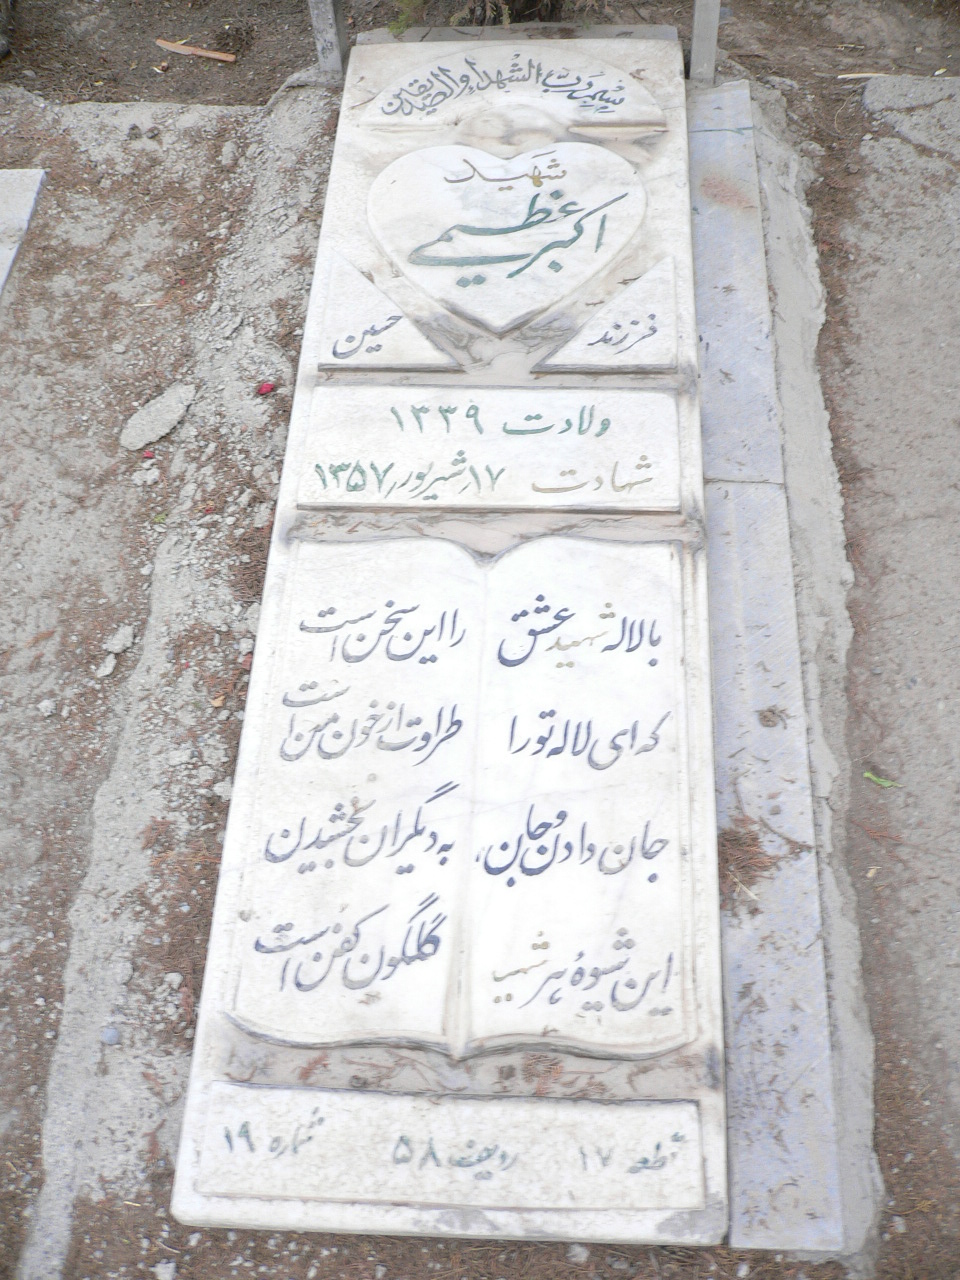 بسم رب الشهداء والصدیقین
شهید
اکبر عظیمی
فرزند حسین
ولادت ۱۳۳۹
شهادت ۱۷ر شهریور ر۱۳۵۷
با لاله شهید عشق را این سخن است
که ای لاله تو را طراوت از خون من است
جان دادن و جان به دیگران بخشیدن
این شیوهٔ هر شهید گلگون کفن است
قطعه ۱۷ ردیف ۵۸ شماره ۱۹